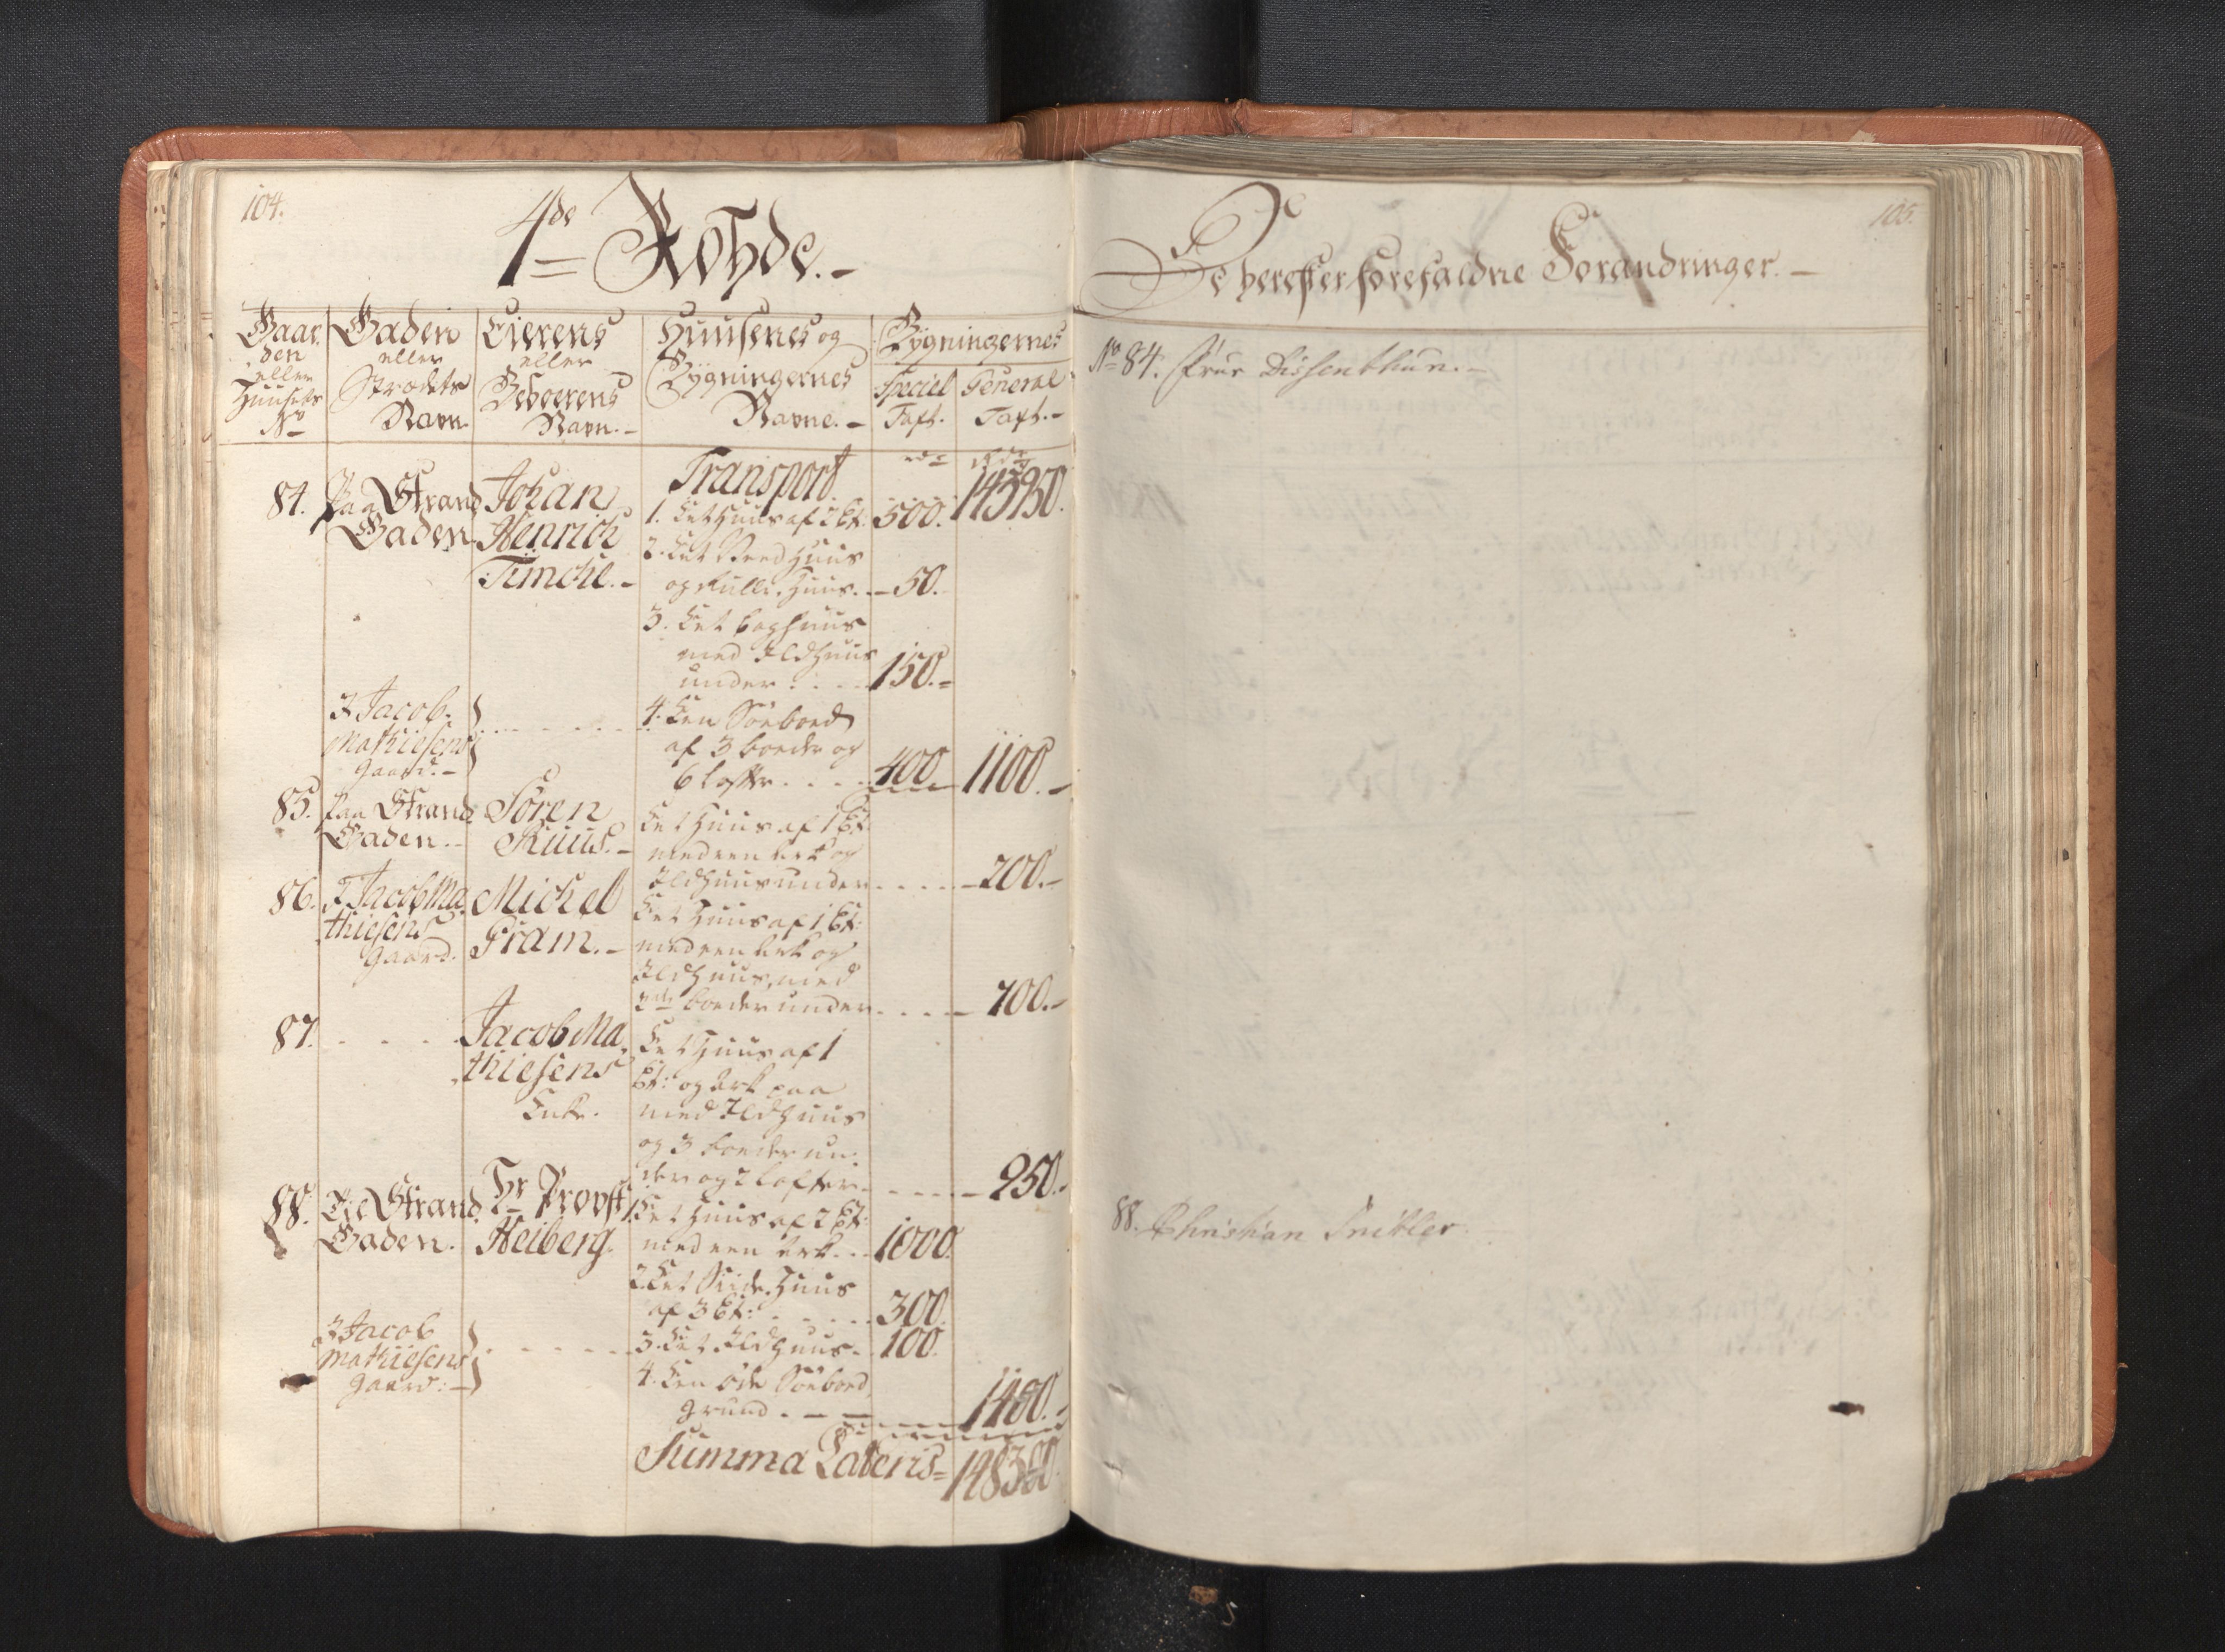 104.
4de Rohde.-
Gaar-
den
eller
Huusets
No
Gaden
eller
Strædets
Navn.
Eierens
eller
Beboerens
Navn.-
Huusenes og
Bygningernes
Navne.-
Bygningernes
Speciel
Taxt.
General
Taxt.-
Transport
145950.
84. Paa Strand
Gaden.
Johan
Henrich
Timche.-
1. Eet Huus af 2 Et: 500.
2. Eet Veed Huus
og Rulle Huus. - 50.
3. Eet baghuus
med Ildhuus
under . . . . 150.-
I Jacob
Mathiesens
gaard.-
4. Een Søeboed
af 3 boeder og
6 lofter . . . . 400. 1100.-
85. Paa Strand
Gaden.-
Sören
Ruus.-
Eet Huus af 1 Et:
med een Ark og
Ildhuus under . . . . - 200.-
86. I Jacob Ma
thiesens
gaard.
Michel
Pram.-
Eet Huus af 1 Et:
med een Ark og
Ildhuus, med
2de boeder under . . . . - 700.-
87. . . . .
Jacob Ma
thiesens
Enke.
Eet Huus af 1
Et: og Ark paa
med Ildhuus
og 3 boeder un-
der og 2 lofter . . . . - 950.-
88. Paa Strand
Gaden.
Hr Provst
Heiberg.
1. Eet Huus af 2 Et:
med een Ark . . . 1000.
2. Eet Siide Huus
af 3 Et: . . . . . 300.
3. Eet Ildhuus. - 100.
I Jacob
Mathiesens
gaard:-
4. Een øde Søeboed
grund . - - 1400.-
Summa Lateris = 148300.
105.
De herefter forefaldne Forandringer.-
No 84. Frue Dissenthun.-
88. Christian